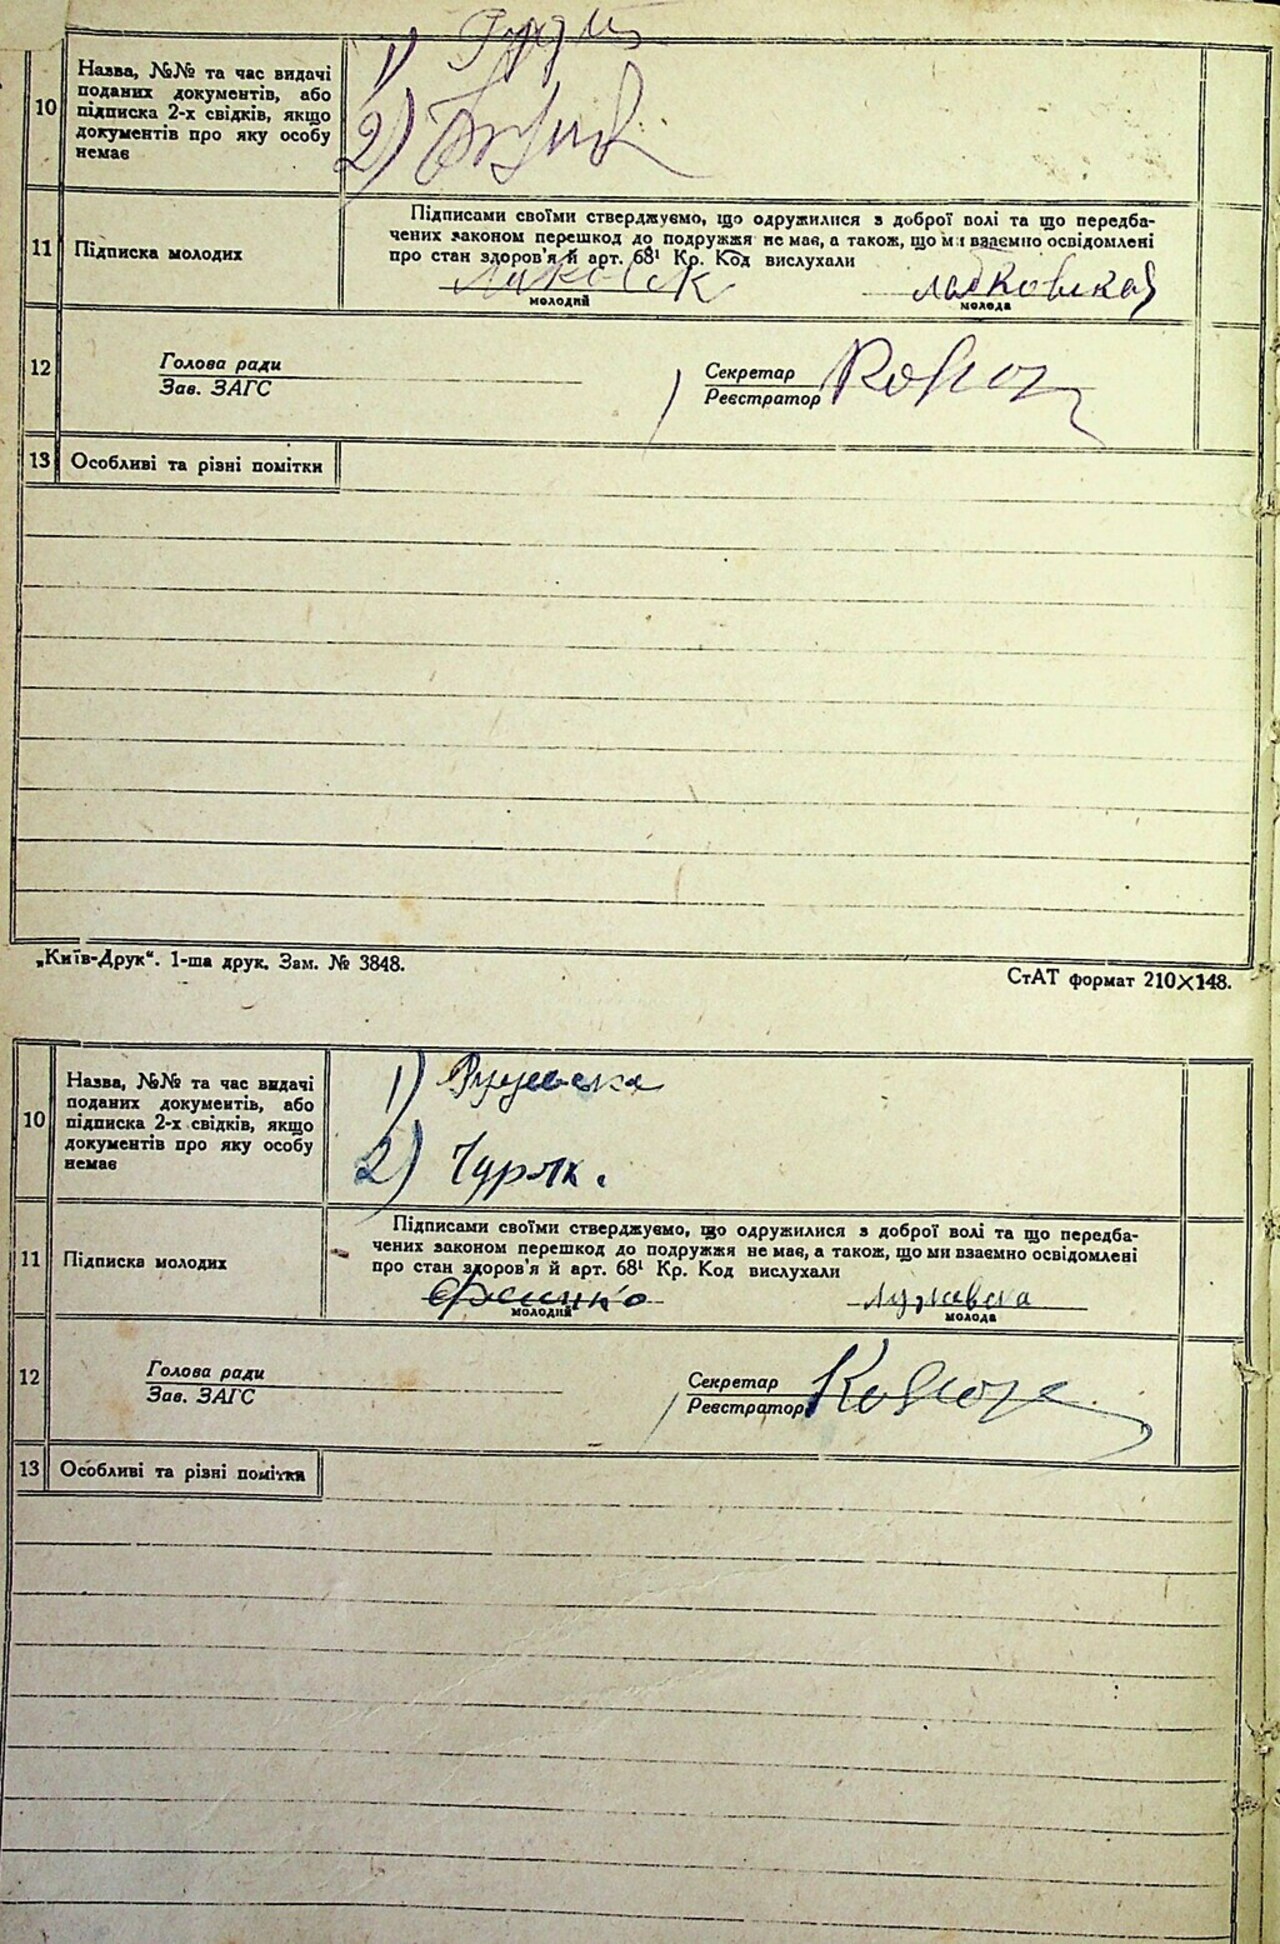 10
Назва, №№ та час видачі
поданих документів, або
підписка 2-х свідків, якщо
документів про яку особу
немає
1)
2)
11
Підписка молодих
Підписами своїми стверджуємо, що одружилися з доброї волі та що передба-
чених законом перешкод до подружжя не має, а також, що ми взаємно освідомлені
про стан здоров'я й арт. 68¹ Кр. Код вислухали
молодий
молода
12
Голова ради
Зав. ЗАГС
Секретар
Реєстратор
13
Особливі та різні помітки
„Київ-Друк“. 1-ша друк. Зам. № 3848.
СтАТ формат 210×148.
10
Назва, №№ та час видачі
поданих документів, або
підписка 2-х свідків, якщо
документів про яку особу
немає
1)
2) Чурях.
11
Підписка молодих
Підписами своїми стверджуємо, що одружилися з доброї волі та що передба-
чених законом перешкод до подружжя не має, а також, що ми взаємно освідомлені
про стан здоров'я й арт. 68¹ Кр. Код вислухали
молодий
молода
12
Голова ради
Зав. ЗАГС
Секретар
Реєстратор
13
Особливі та різні помітки